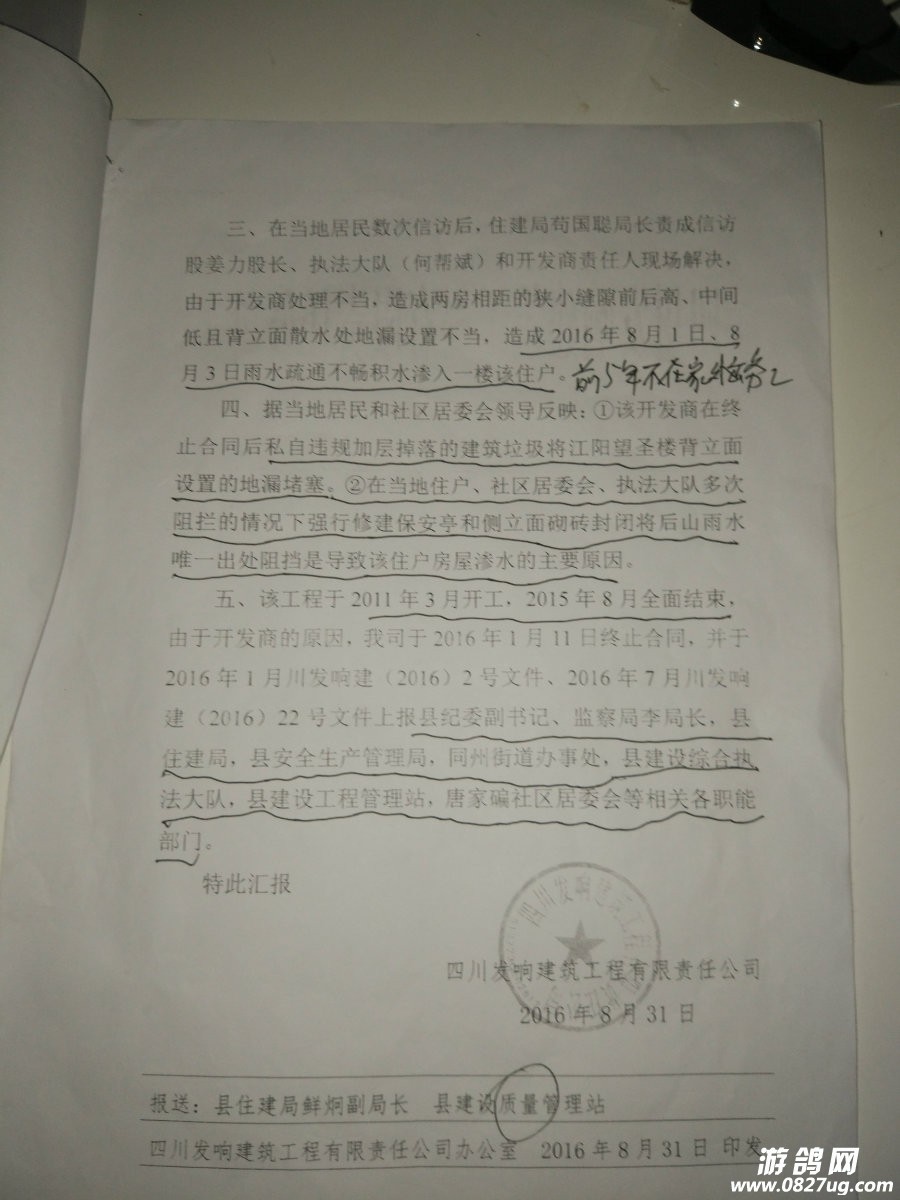 三、在当地居民数次信访后，住建局苟国聪局长责成信访
股姜力股长、执法大队（何帮斌）和开发商责任人现场解决，
由于开发商处理不当，造成两房相距的狭小缝隙前后高、中间
低且背立面散水处地漏设置不当，造成 2016 年 8 月 1 日、8
月 3 日雨水疏通不畅积水渗入一楼该住户。前5年不在家
四、据当地居民和社区居委会领导反映：①该开发商在终
止合同后私自违规加层掉落的建筑垃圾将江阳望圣楼背立面
设置的地漏堵塞。②在当地住户、社区居委会、执法大队多次
阻拦的情况下强行修建保安亭和侧立面砌砖封闭将后山雨水
唯一出处阻挡是导致该住户房屋渗水的主要原因。
五、该工程于 2011 年 3 月开工，2015 年 8 月全面结束，
由于开发商的原因，我司于 2016 年 1 月 11 日终止合同，并于
2016 年 1 月川发响建（2016）2 号文件、2016 年 7 月川发响
建（2016）22 号文件上报县纪委副书记、监察局李局长，县
住建局，县安全生产管理局，同州街道办事处，县建设综合执
法大队，县建设工程管理站，唐家碥社区居委会等相关各职能
部门。
特此汇报
四川发响建筑工程有限责任公司
2016 年 8 月 31 日
报送：县住建局鲜炯副局长 县建设质量管理站
四川发响建筑工程有限责任公司办公室 2016 年 8 月 31 日 印发
游鸽网
www.0827ug.com